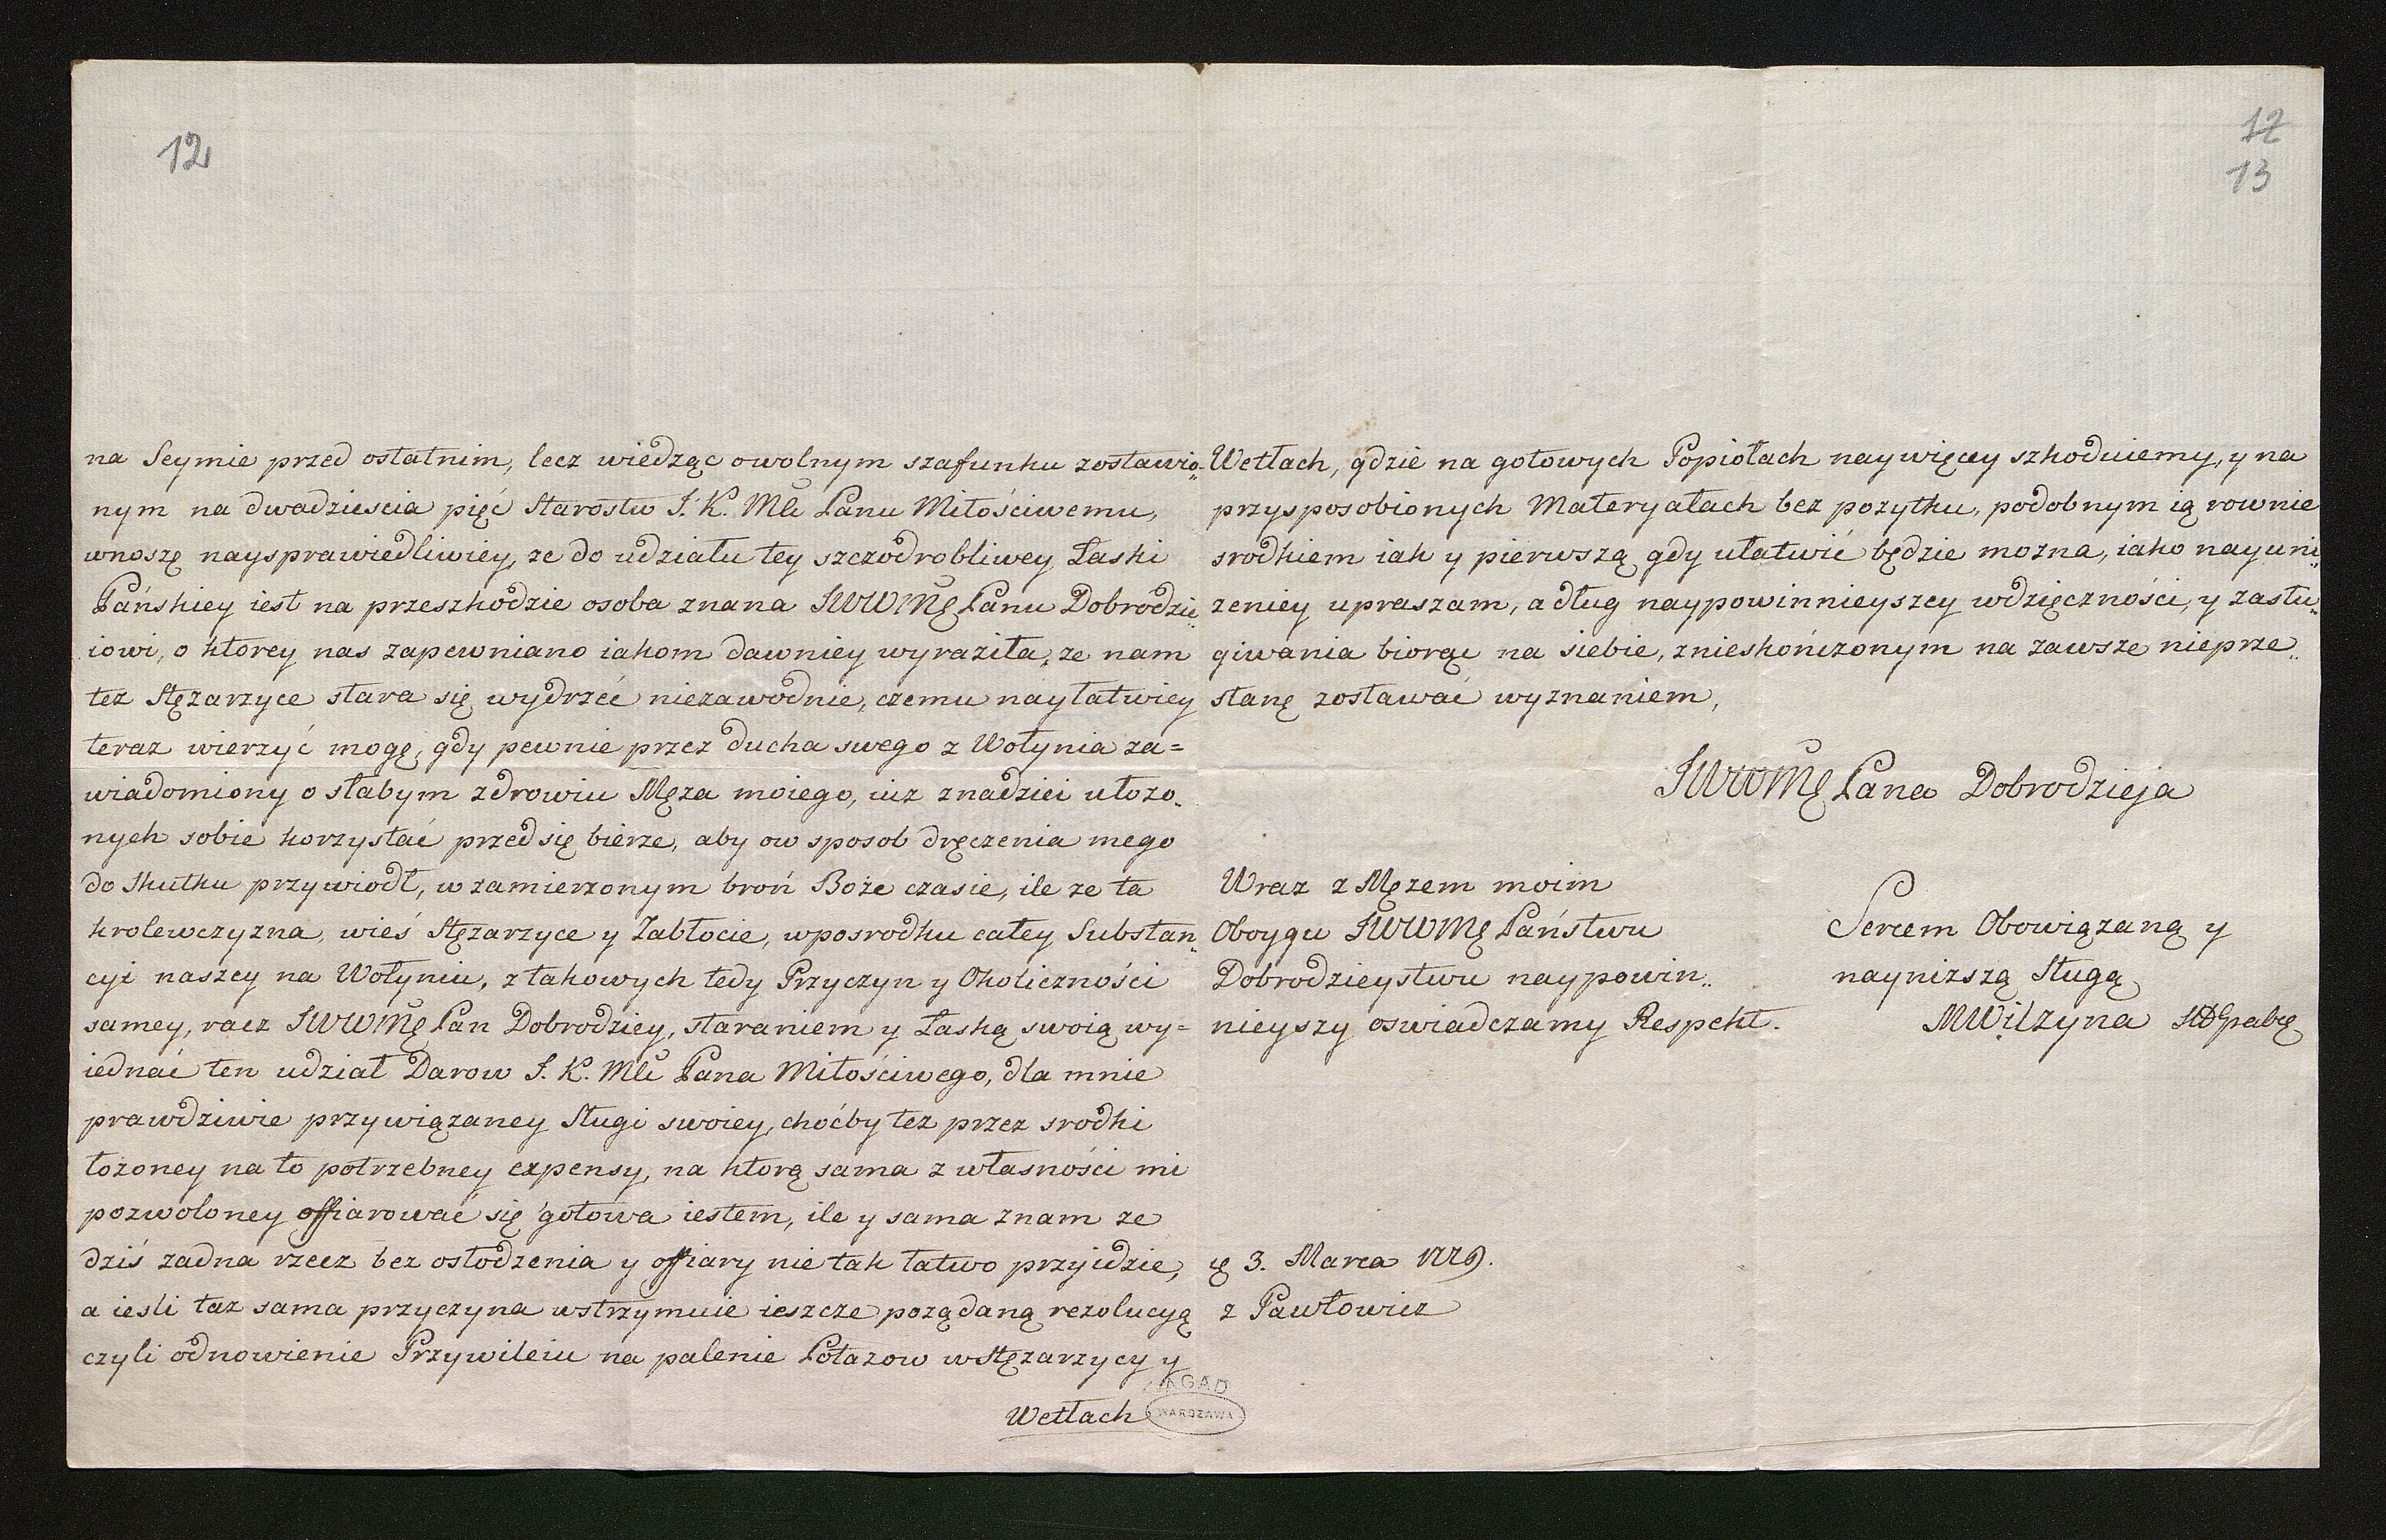 12
na Seymie przed ostatnim, lecz wiedząc owolnym szafunku zostawio„
nym na dwadziescia pięć Starostw J. K. Mci Panu Miłościwemu,
wnoszę naysprawiedliwiey, ze do udziału tey szczodrobliwey Łaski
Pańskiey iest na przeszkodzie osoba znana JWWMę Panu Dobrodzie„
iowi, o ktorey nas zapewniano iakom dawniey wyraziła, ze nam
tez Stęzarzyce stara się wydrzeć niezawodnie, czemu nayłatwiey
teraz wierzyć mogę, gdy pewnie przez ducha swego z Wołynia za=
wiadomiony o słabym zdrowiu Męza moiego, iuz znadziei ułozo„
nych sobie korzystać przedsię bierze, aby ow sposob dręczenia mego
do skutku przywiodł, w zamierzonym broń Boże czasie, ile ze ta
krolewczyzna, wieś Stęzarzyce y Zabłocie, wposrodku całey Substan„
cyi naszey na Wołyniu, z takowych tedy Przyczyn y Okoliczności
samey, racz JWWMę Pan Dobrodziey, staraniem y Łaską swoią wy=
iednać ten udział Darow J. K. Mci Pana Miłościwego, dla mnie
prawdziwie przywiązaney Sługi swoiey, choćby tez przez srodki
łożoney na to potrzebney expensy, na ktorą sama z własności mi
pozwoloney offiarować się gotowa iestem, ile y sama znam ze
dziś zadna rzecz bez osłodzenia y offiary nie tak łatwo przyidzie,
a iesli taz sama przyczyna wstrzymuie ieszcze pożądaną rezolucyą
czyli odnowienie Przywileiu na palenie Potazow wStęzarzycy y
Wetlach
AGAD
WARSZAWA
12
13
Wetlach, gdzie na gotowych Popiołach naywięcey szkoduiemy, y na
przysposobionych Materyałach bez pozytku, podobnym ią rownie
srodkiem iak y pierwszą gdy ułatwić będzie mozna, iako nayuni„
zeniey upraszam, a dług naypowinnieyszey wdzięczności, y zasłu„
giwania biorąc na siebie, znieskończonym na zawsze nieprze„
stanę zostawać wyznaniem,
JWWMę Pana Dobrodzieja
Wraz z Męzem moim
Oboygu JWWMę Państwu
Dobrodzieystwu naypowin„
nieyszy oswiadczamy Respekt.
Sercem Obowiązaną y
nayniższą Sługą
MWilzyna
3. Marca 1779.
z Pawłowicz